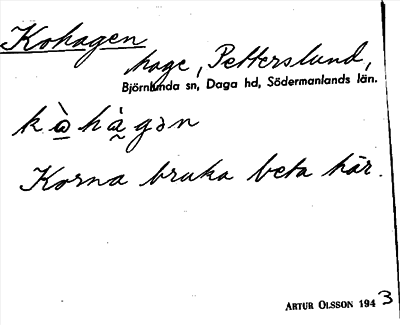 Kohagen
hage, Petterslund,
Björnlunda sn, Daga hd, Södermanlands län.
kὼhàgən
Korna bruka beta här.
ARTUR OLSSON 1943